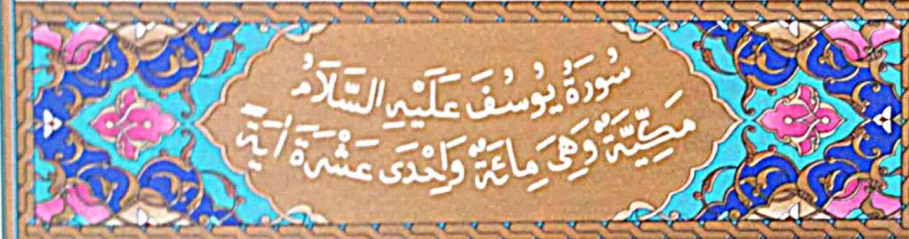 سُورَةُ يُوسُفَ عَلَيْهِ السَّلَامُ
مَكِّيَّةٌ وَهِىَ مِائَةٌ وَاِحْدٰى عَشْرَةَ اٰيَةً